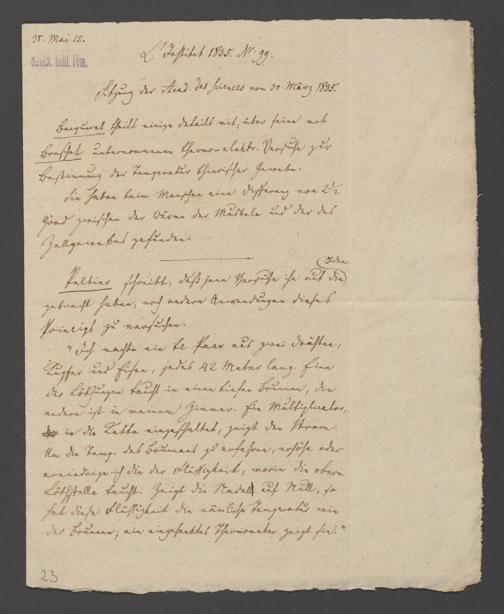 35. Mai 12.
Senck. Bibl. Ffm.
L'Institut 1835. No. 99.
Sitzung der Acad. des Sciences vom 30. März 1835.
Becquerel theilt einige Details mit, über seine mit
Breschet unternommenen thermo-elektr. Versuche zur
Bestimmung der Temperatur thierischer Gewebe.
Sie haben beim Menschen eine Differenz von 2½
Grad zwischen der Wärme der Muskeln und der des
Zellgewebes gefunden.
Peltier schreibt, daß jene Versuche ihn auf die Idee
gebracht haben, noch andere Anwendungen dieses
Princips zu versuchen.
"Ich machte ein th. Paar aus zwei Drähten,
Kupfer und Eisen, jedes 42 Meter lang. Eine
der Löthungen taucht in einen tiefen Brunnen, die
andere ist in meinem Zimmer. Ein Multiplicator,
in die Kette eingeschaltet, zeigt den Strom.
Um die Temp. des Brunnens zu erfahren, erhöhe oder
erniedrige ich die der Flüssigkeit, worin die obere
Löthstelle taucht. Zeigt die Nadel auf Null, so
hat diese Flüssigkeit die nämliche Temperatur wie
der Brunnen; ein eingesenktes Thermometer zeigt sie."
23